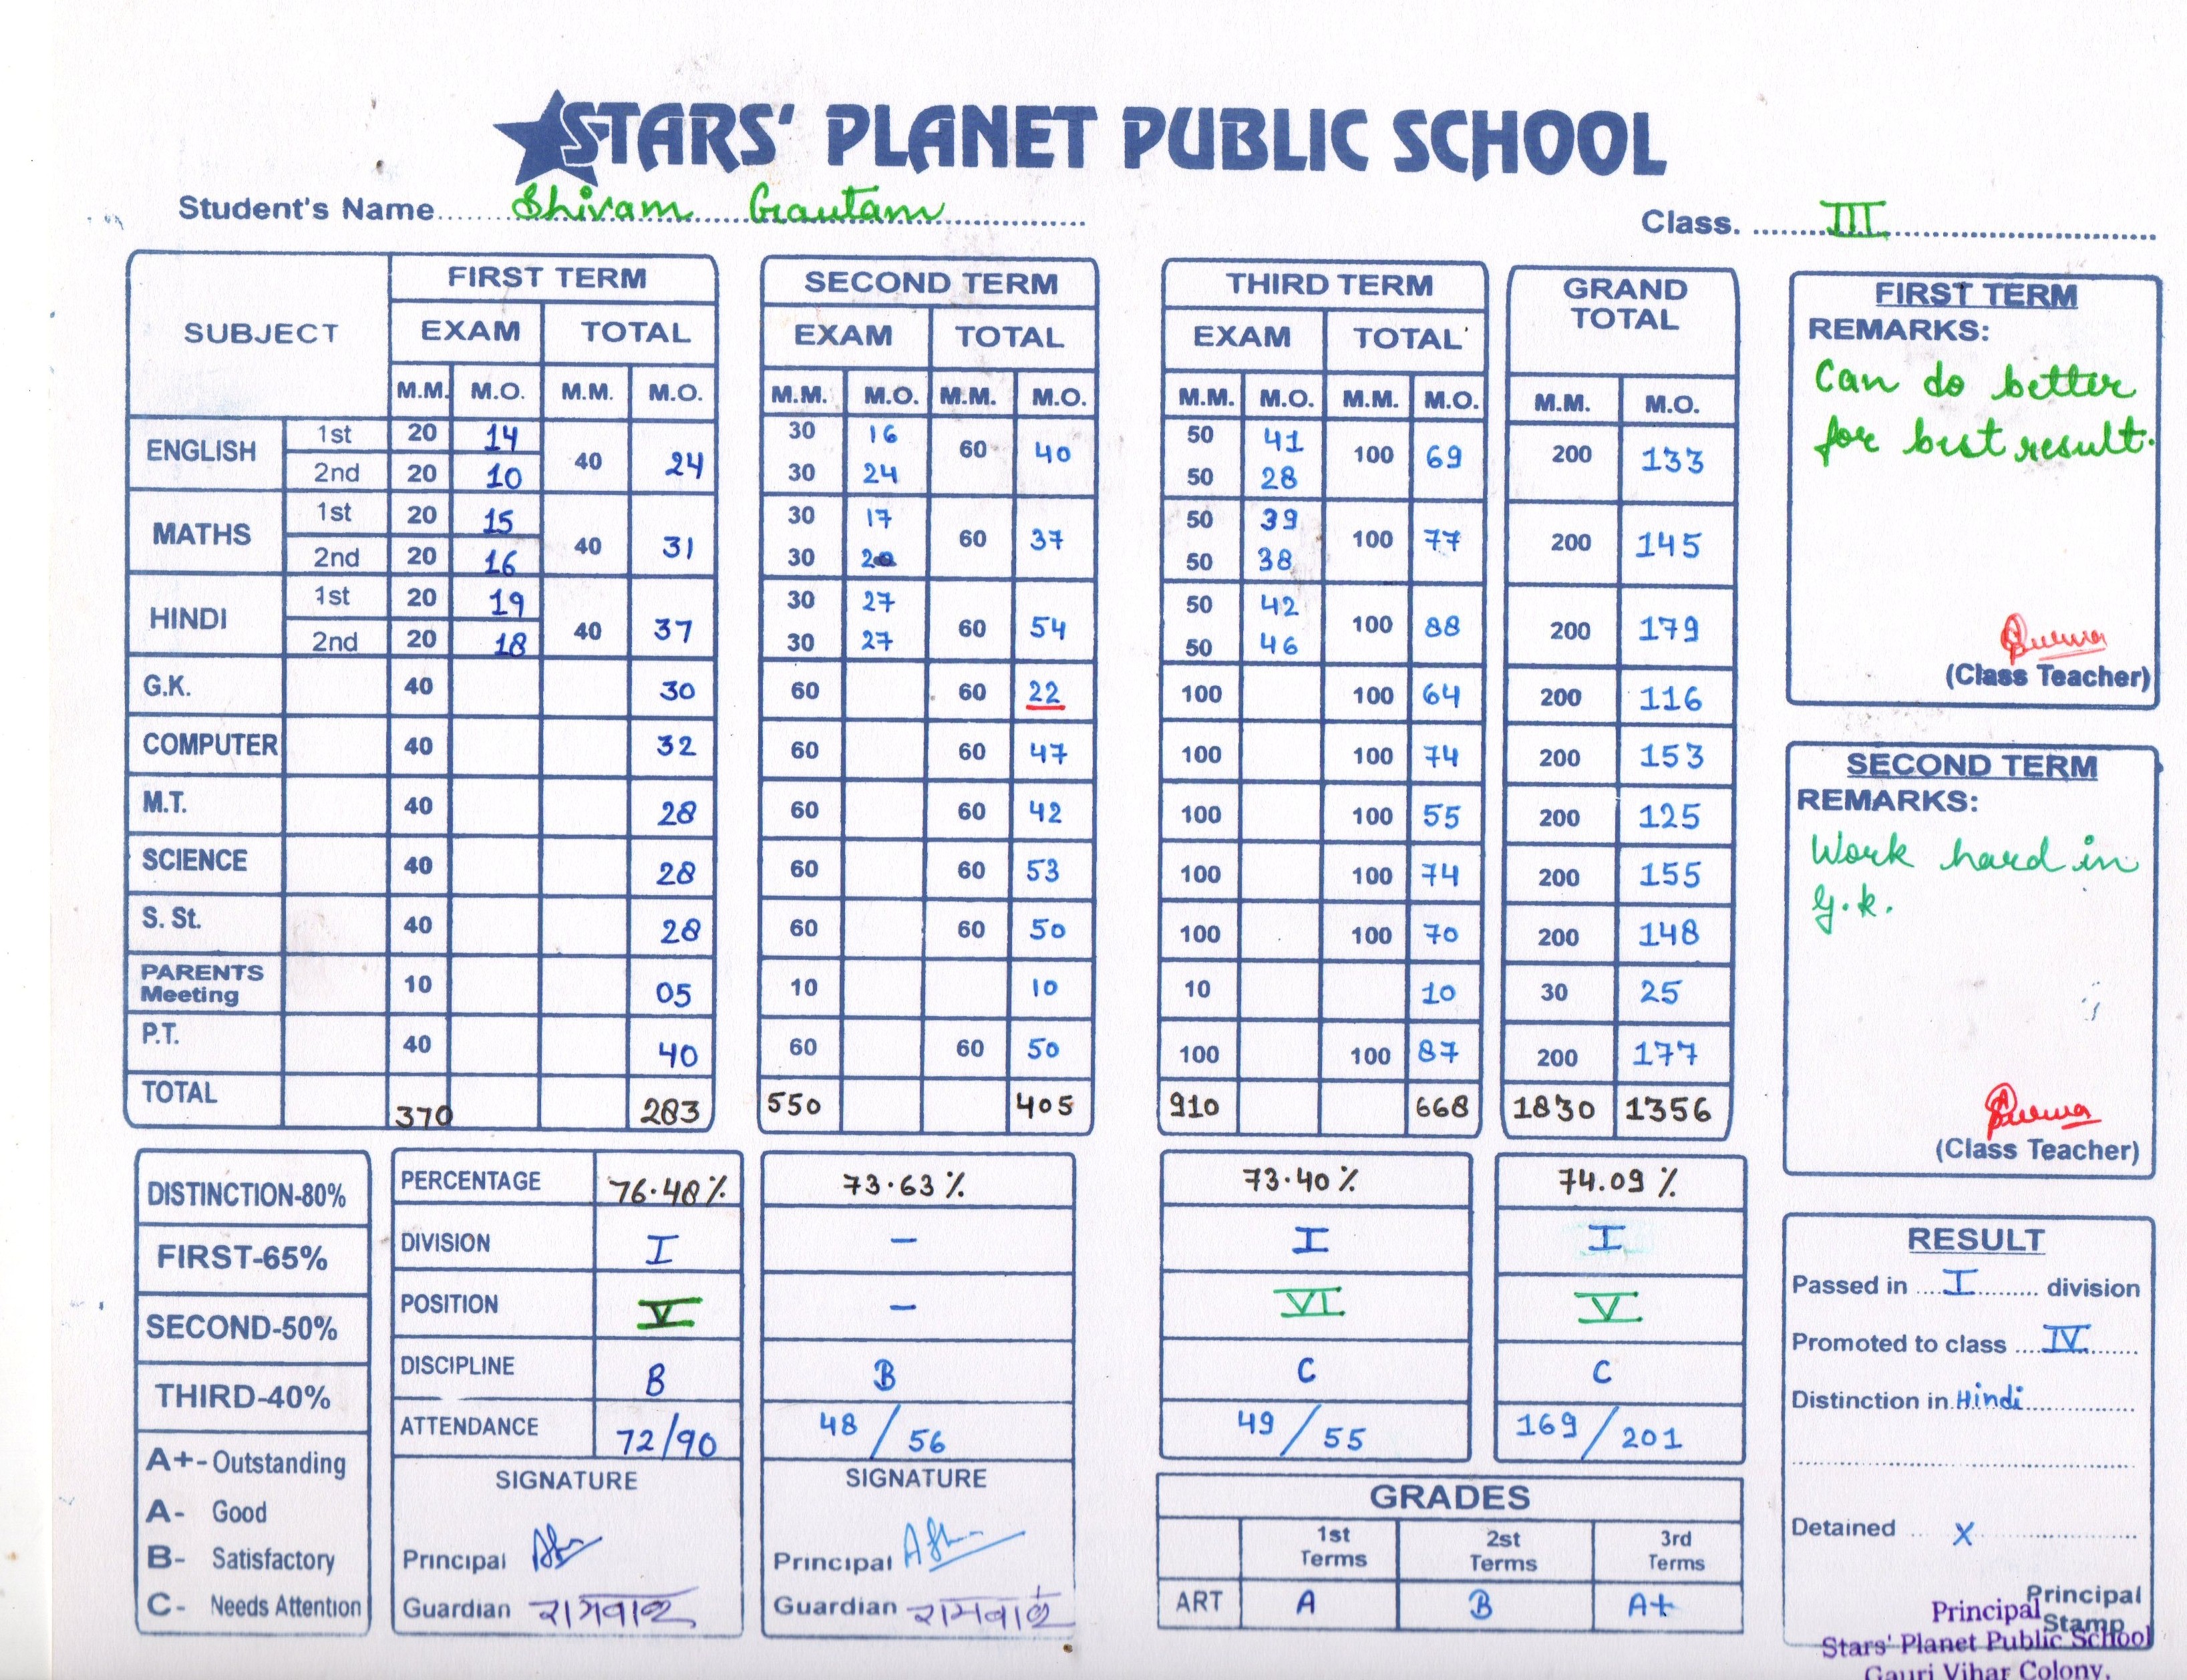 STARS' PLANET PUBLIC SCHOOL
Student's Name Shivam Gautam Class. III
SUBJECT FIRST TERM SECOND TERM THIRD TERM GRAND TOTAL
EXAM TOTAL EXAM TOTAL EXAM TOTAL
M.M. M.O. M.M. M.O. M.M. M.O. M.M. M.O. M.M. M.O. M.M. M.O. M.M. M.O.
ENGLISH 1st 20 14 40 24 30 16 60 40 50 41 100 69 200 133
2nd 20 10 30 24 50 28
MATHS 1st 20 15 40 31 30 17 60 37 50 39 100 77 200 145
2nd 20 16 30 20 50 38
HINDI 1st 20 19 40 37 30 27 60 54 50 42 100 88 200 179
2nd 20 18 30 27 50 46
G.K. 40 30 60 60 22 100 100 64 200 116
COMPUTER 40 32 60 60 47 100 100 74 200 153
M.T. 40 28 60 60 42 100 100 55 200 125
SCIENCE 40 28 60 60 53 100 100 74 200 155
S. St. 40 28 60 60 50 100 100 70 200 148
PARENTS Meeting 10 05 10 10 10 10 30 25
P.T. 40 40 60 60 50 100 100 87 200 177
TOTAL 370 283 550 405 910 668 1830 1356
FIRST TERM
REMARKS:
Can do better
for best result.
(Class Teacher)
SECOND TERM
REMARKS:
Work hard in
G.k.
(Class Teacher)
DISTINCTION-80%
FIRST-65%
SECOND-50%
THIRD-40%
A+- Outstanding
A- Good
B- Satisfactory
C- Needs Attention
PERCENTAGE 76.48% 73.63% 73.40% 74.09%
DIVISION I - I I
POSITION V - VI V
DISCIPLINE B B C C
ATTENDANCE 72/90 48/56 49/55 169/201
SIGNATURE SIGNATURE
Principal Principal
Guardian Guardian
GRADES
1st Terms 2st Terms 3rd Terms
ART A B A+
RESULT
Passed in I division
Promoted to class IV
Distinction in Hindi
Detained X
Principal
Stamp
Principal
Stars' Planet Public School
Gauri Vihar Colony,